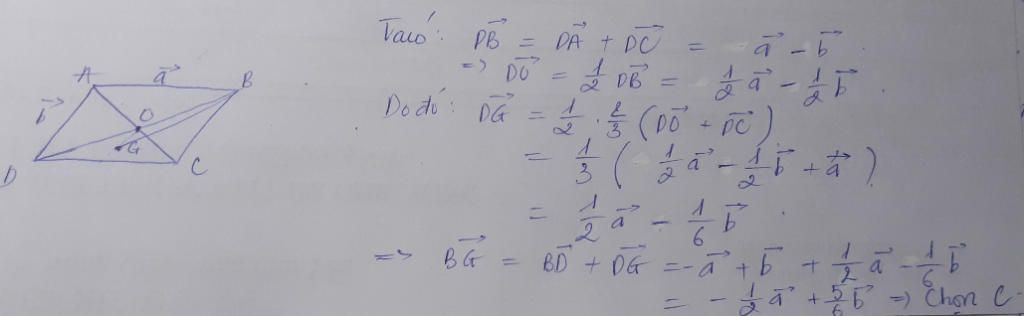 Ta có: \vec{DB} = \vec{DA} + \vec{DC} = \vec{a} - \vec{b}.
=> \vec{DO} = \frac{1}{2} \vec{DB} = \frac{1}{2}\vec{a} - \frac{1}{2}\vec{b}.
Do đó: \vec{DG} = \frac{1}{2} \cdot \frac{2}{3} (\vec{DO} + \vec{DC})
= \frac{1}{3} ( \frac{1}{2}\vec{a} - \frac{1}{2}\vec{b} + \vec{a} ).
= \frac{1}{2}\vec{a} - \frac{1}{6}\vec{b}.
=> \vec{BG} = \vec{BD} + \vec{DG} = -\vec{a} + \vec{b} + \frac{1}{2}\vec{a} - \frac{1}{6}\vec{b}
= -\frac{1}{2}\vec{a} + \frac{5}{6}\vec{b} => Chọn C.
A \vec{a} B
\vec{b} O
G
D C